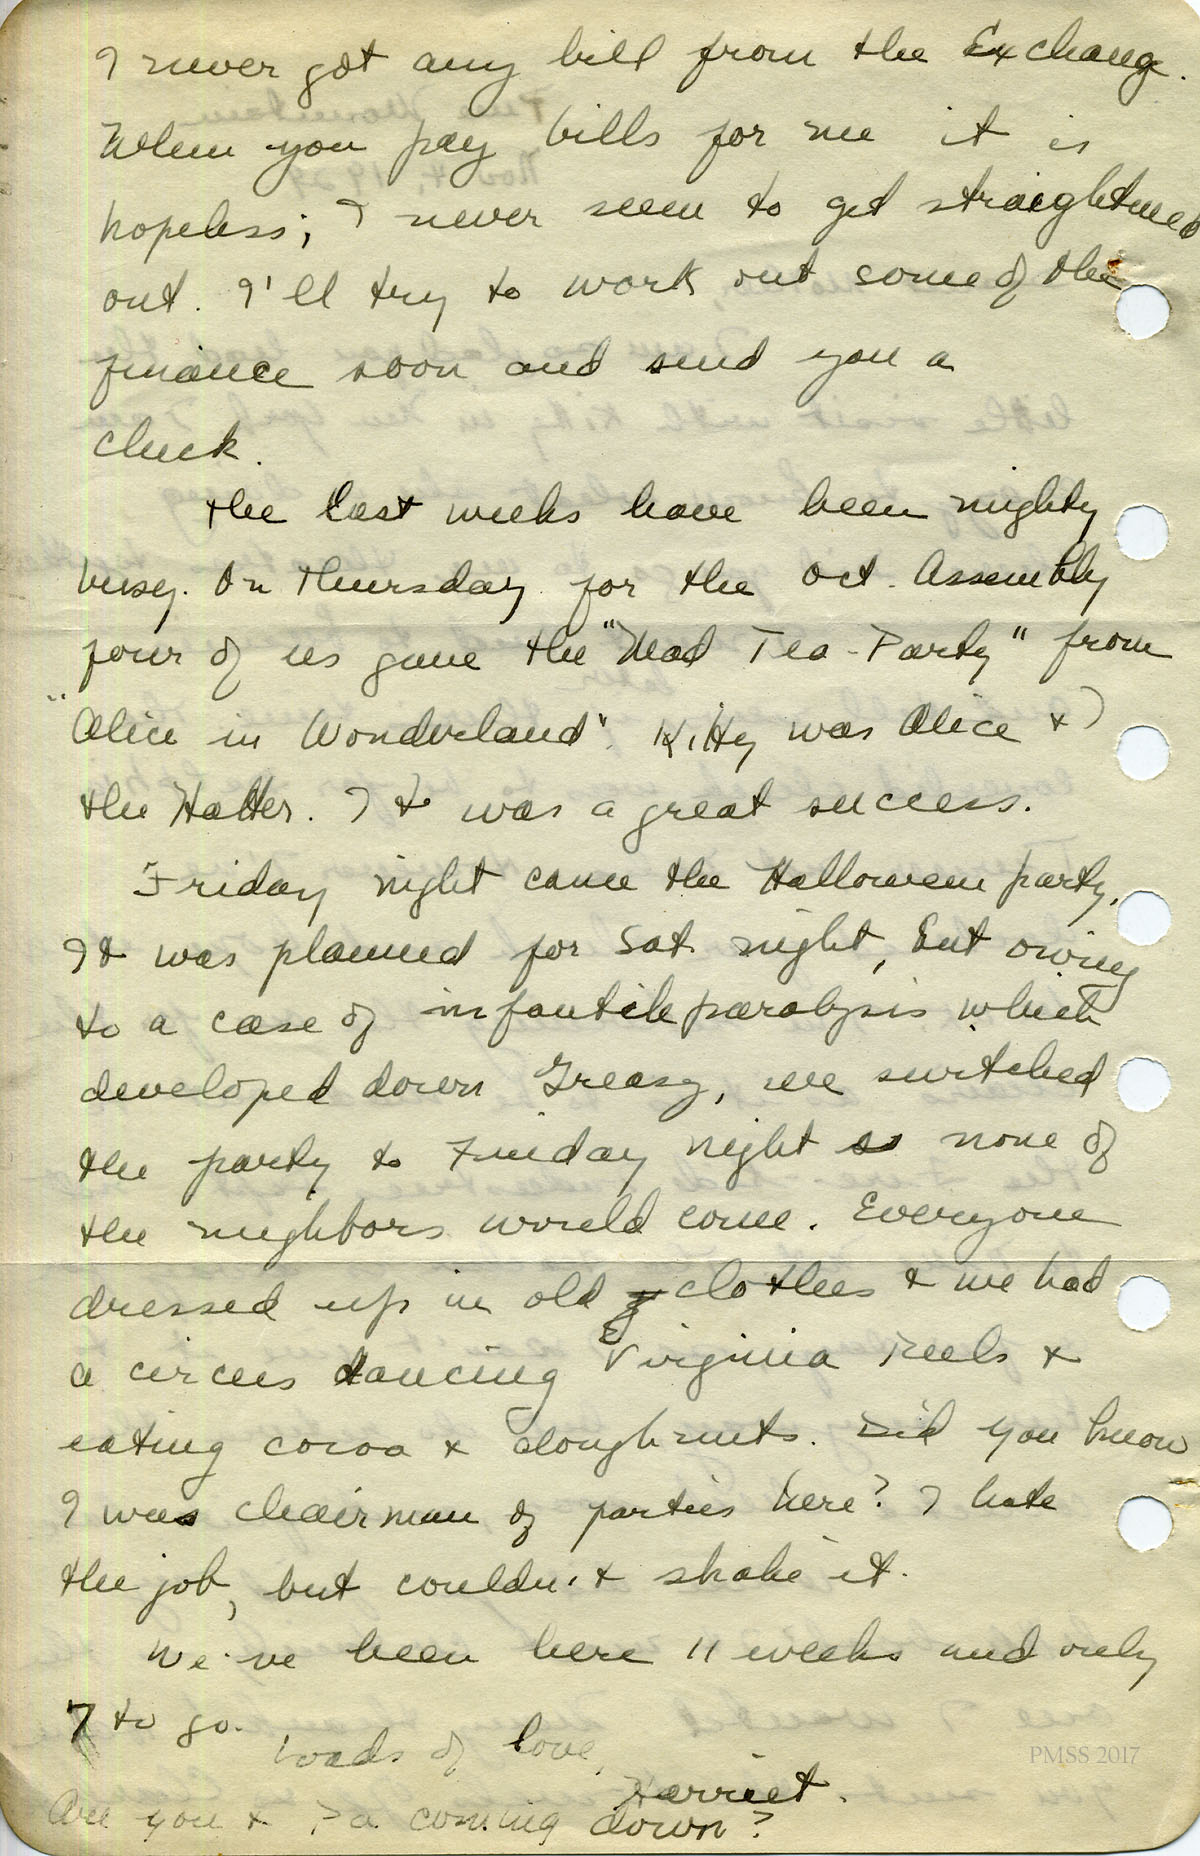 I never got any bill from the Exchange.
When you pay bills for me it is
hopeless; I never seem to get straightened
out. I'll try to work out some of the
finance soon and send you a
check.
the last weeks have been mighty
busy. On Thursday for the Oct. Assembly
four of us gave the "Mad Tea-Party" from
"Alice in Wonderland". Kitty was Alice & I
the Hatter. It was a great success.
Friday night came the Halloween party.
It was planned for Sat. night, but owing
to a case of infantile paralysis which
developed down Greasy, we switched
the party to Friday night so none of
the neighbors would come. Everyone
dressed up in old clothes & we had
a circus dancing Virginia Reels &
eating cocoa & doughnuts. Did you know
I was chairman of parties here? I hate
the job, but couldn't shake it.
We've been here 11 weeks and only
7 to go.
Loads of love,
Harriet.
Are you & Pa coming down?
PMSS 2017